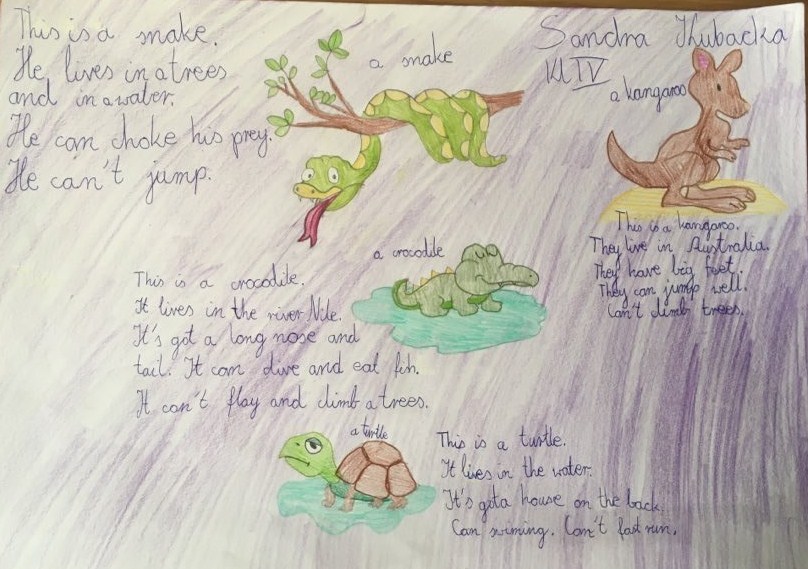 This is a snake.
He lives in a trees
and in a water.
He can choke his prey.
He can't jump.
a snake
Sandra Kubacka
Kl IV
a kangaroo
This is a kangaroo.
They live in Australia.
They have big feet.
They can jump well.
Can't climb trees.
a crocodile
This is a crocodile.
It lives in the river Nile.
It's got a long nose and
tail. It can dive and eat fih.
It can't flay and climb a trees.
a turtle
This is a turtle.
It lives in the water.
It's gota house on the back.
Can swiming. Can't fast run.